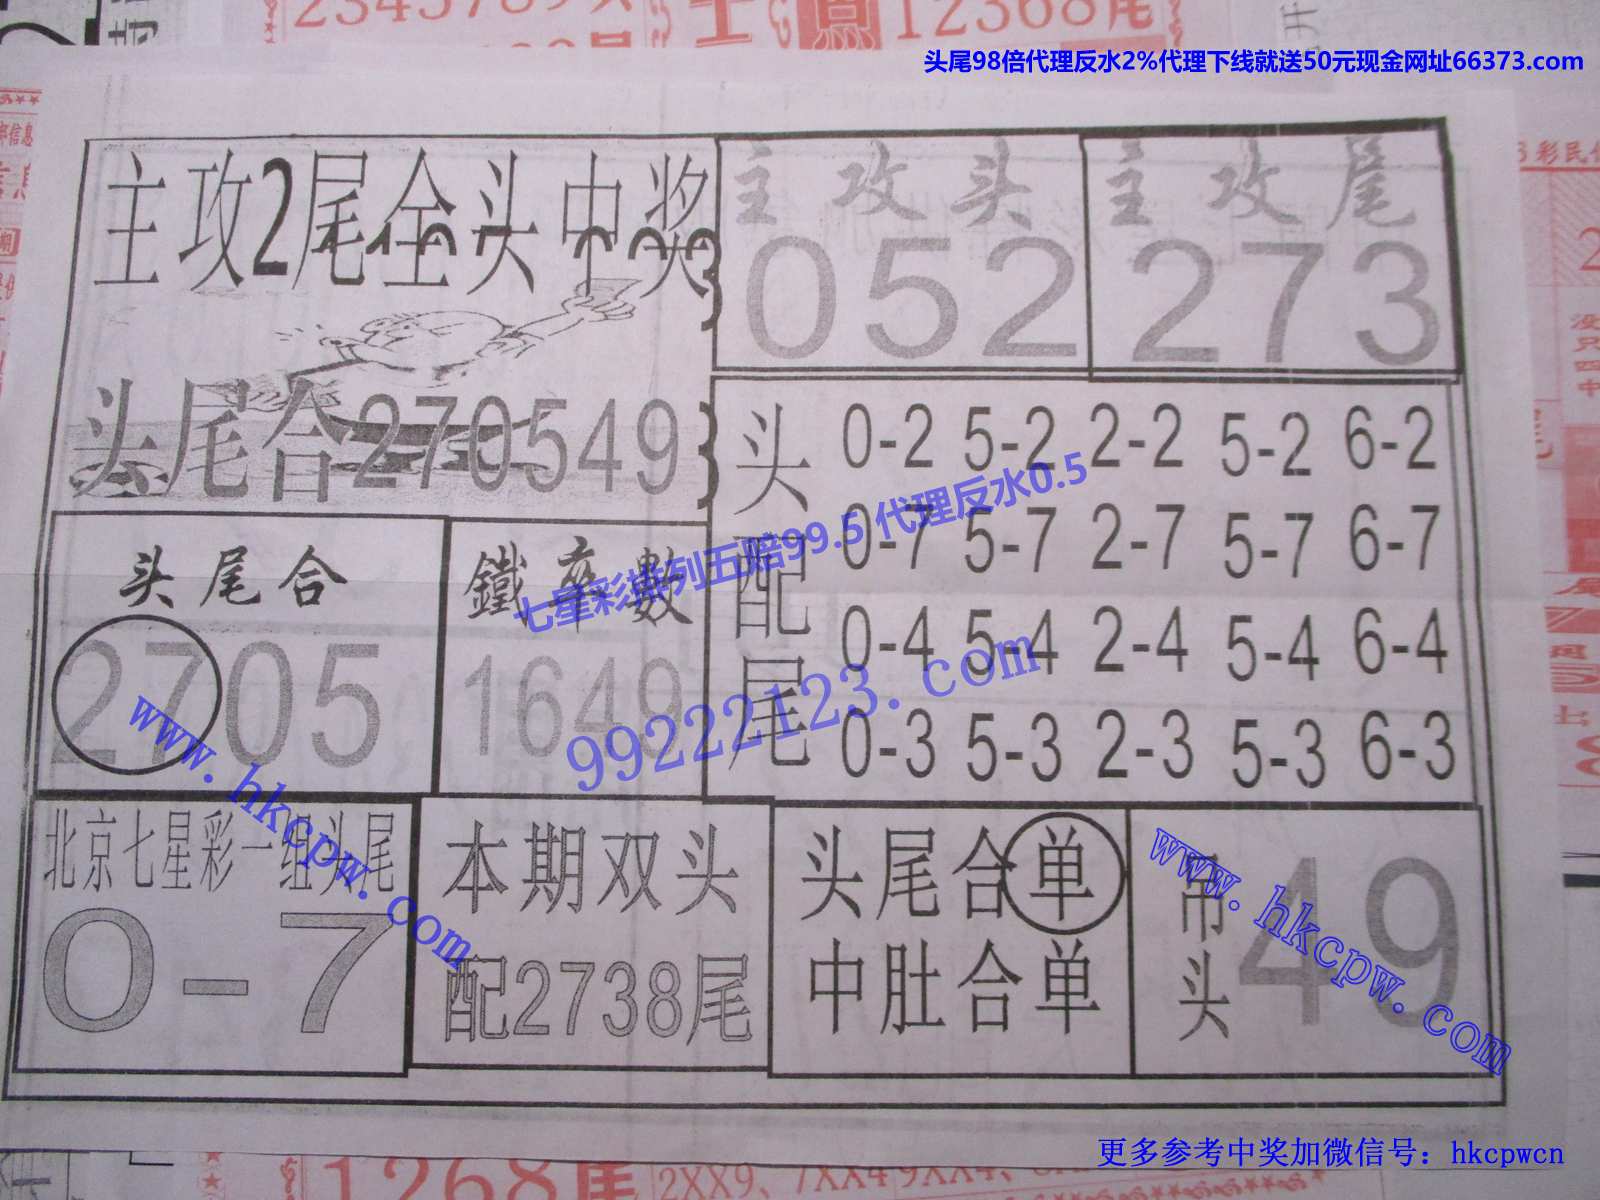 2345789头
12368尾
头尾98倍代理反水2%代理下线就送50元现金网址66373.com
主攻2尾全头中奖
主攻头
052
主攻尾
273
头尾合270549
头配尾
0-2 5-2 2-2 5-2 6-2
0-7 5-7 2-7 5-7 6-7
0-4 5-4 2-4 5-4 6-4
0-3 5-3 2-3 5-3 6-3
七星彩排列五赔99.5 代理反水0.5
99222123.com
头尾合
2705
鐵率數
1649
www.hkcpw.com
北京七星彩一组头尾
0-7
本期双头
配2738尾
头尾合单
中肚合单
吊头
49
www.hkcpw.com
更多参考中奖加微信号：hkcpwcn
1268尾
2XX9、7XX4 9XX4、